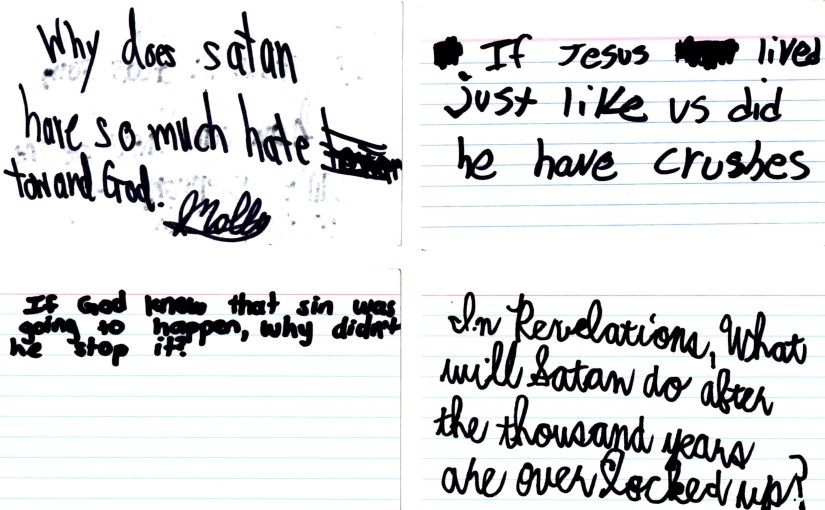 Why does satan
have so much hate
toward God.
If Jesus lived
just like us did
he have crushes
If God knew that sin was
going to happen, why didn't
he stop it?
In Revelations, What
will Satan do after
the thousand years
are over locked up?